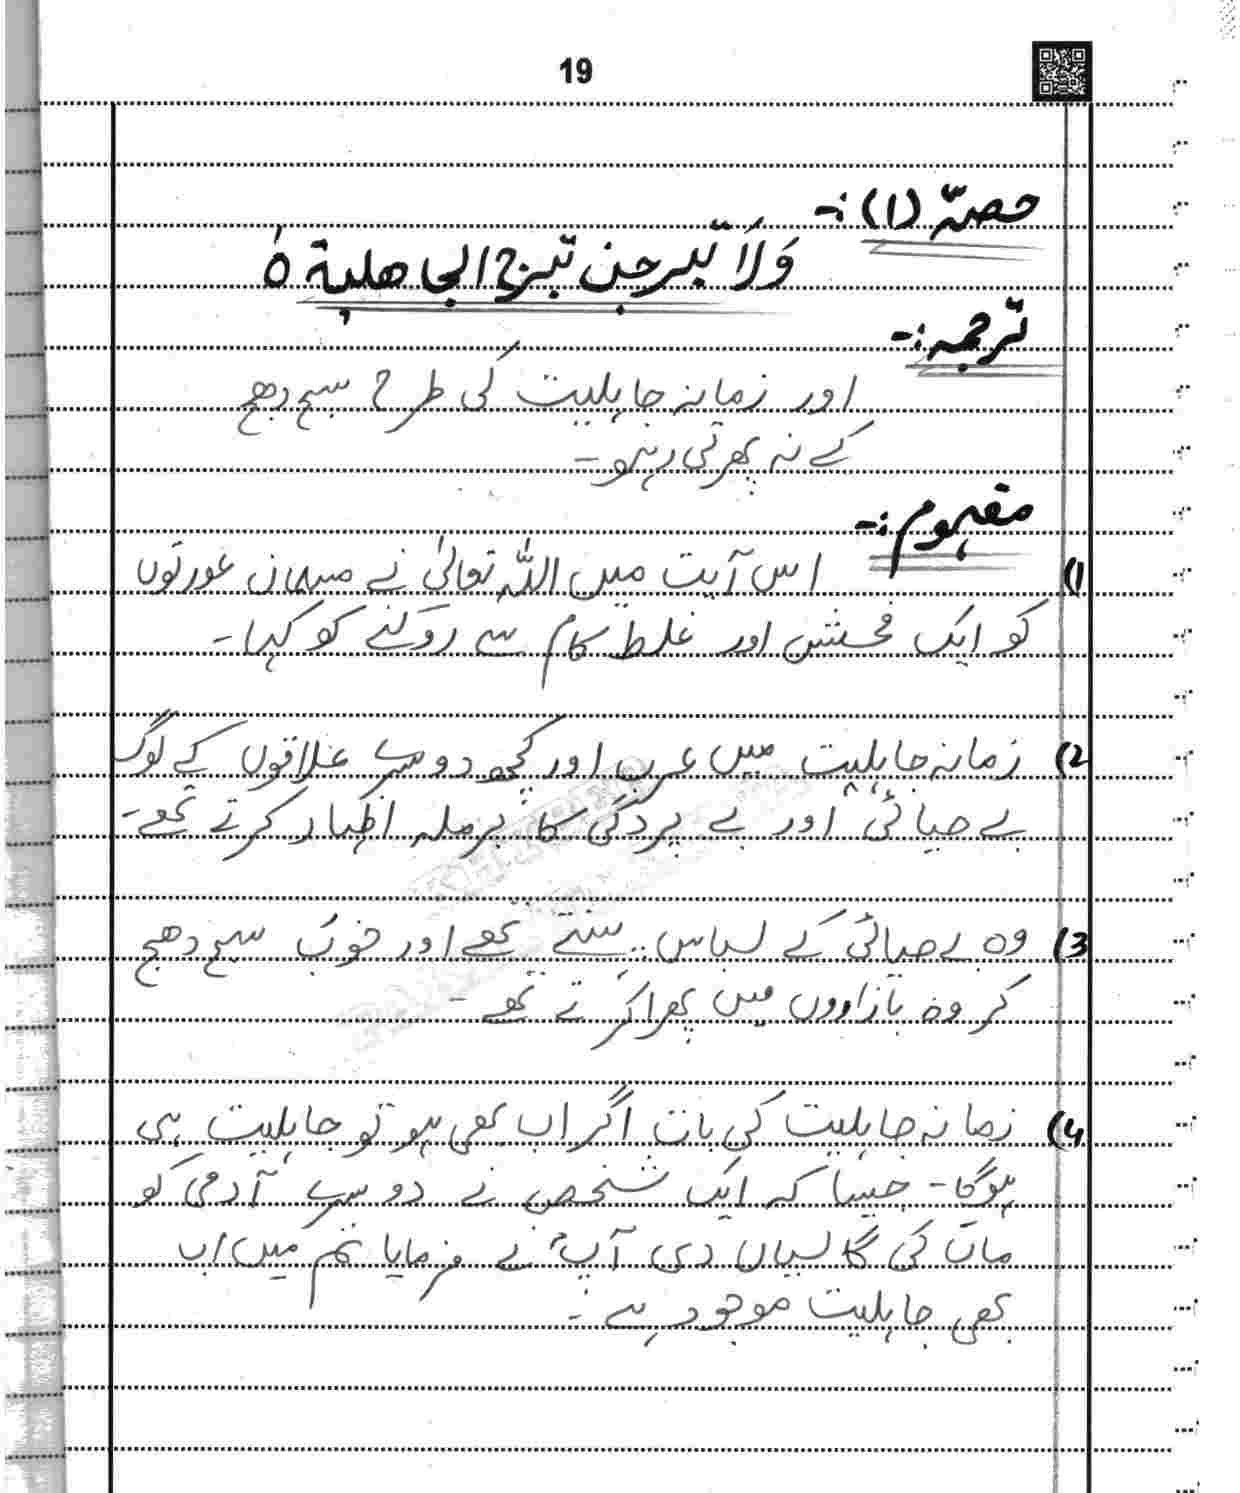 19
حصہ (۱) :-
وَلَا تبرجن تبرج الجاھلیة ہ
ترجمہ :-
اور زمانہ جاہلیت کی طرح سج دھج
کے نہ پھرتی رہو۔
مفہوم :-
1) اس آیت میں اللہ تعالیٰ نے مسلمان عورتوں
کو ایک فحش اور غلط کام سے روکنے کو کہا۔
2) زمانہ جاہلیت میں عرب اور کچھ دوسرے علاقوں کے لوگ
بے حیائی اور بے پردگی کا برملہ اظہار کرتے تھے۔
3) وہ بے حیائی کے لباس پہنتے تھے اور خوب سج دھج
کر وہ بازاروں میں پھرا کرتے تھے۔
4) زمانہ جاہلیت کی بات اگر اب بھی ہو تو جاہلیت ہی
ہوگا۔ جیسا کہ ایک شخص نے دوسرے آدمی کو
ماں کی گالیاں دی آپؐ نے فرمایا تم میں اب
بھی جاہلیت موجود ہے۔